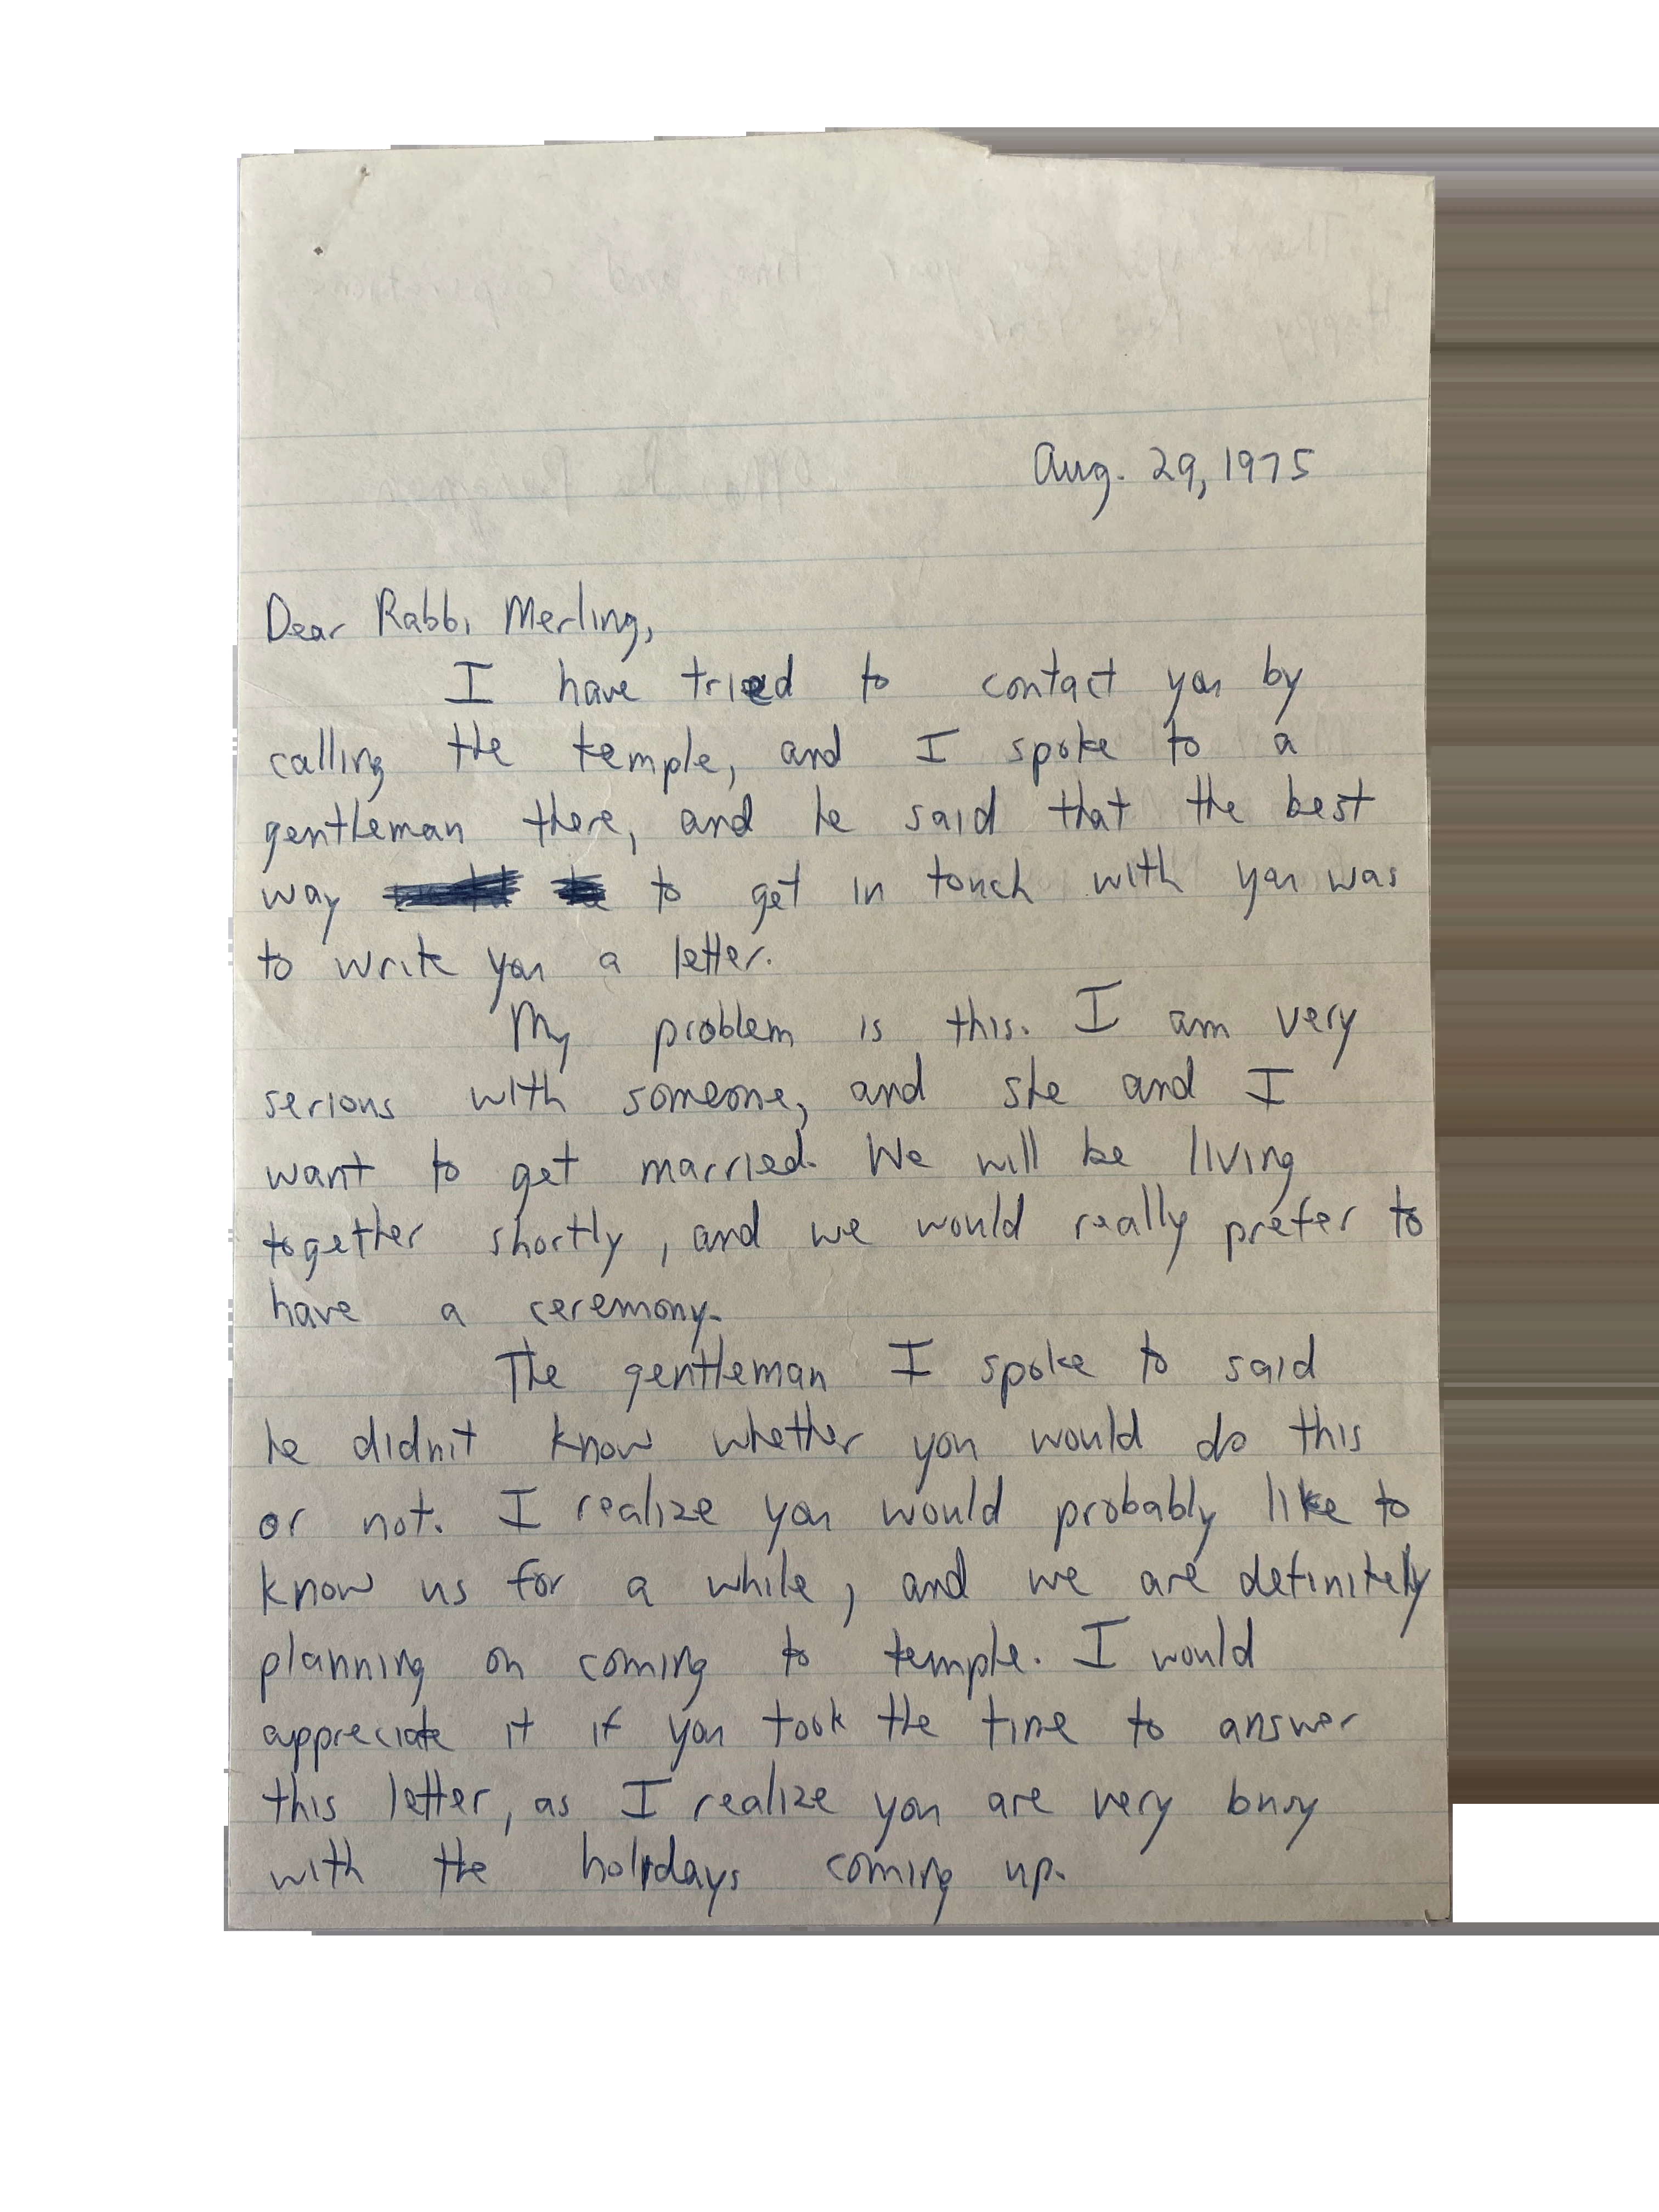 Aug. 29, 1975
Dear Rabbi Merling,
I have tried to contact you by
calling the temple, and I spoke to a
gentleman there, and he said that the best
way to get in touch with you was
to write you a letter.
My problem is this. I am very
serious with someone, and she and I
want to get married. We will be living
together shortly, and we would really prefer to
have a ceremony.
The gentleman I spoke to said
he didn't know whether you would do this
or not. I realize you would probably like to
know us for a while, and we are definitely
planning on coming to temple. I would
appreciate it if you took the time to answer
this letter, as I realize you are very busy
with the holidays coming up.